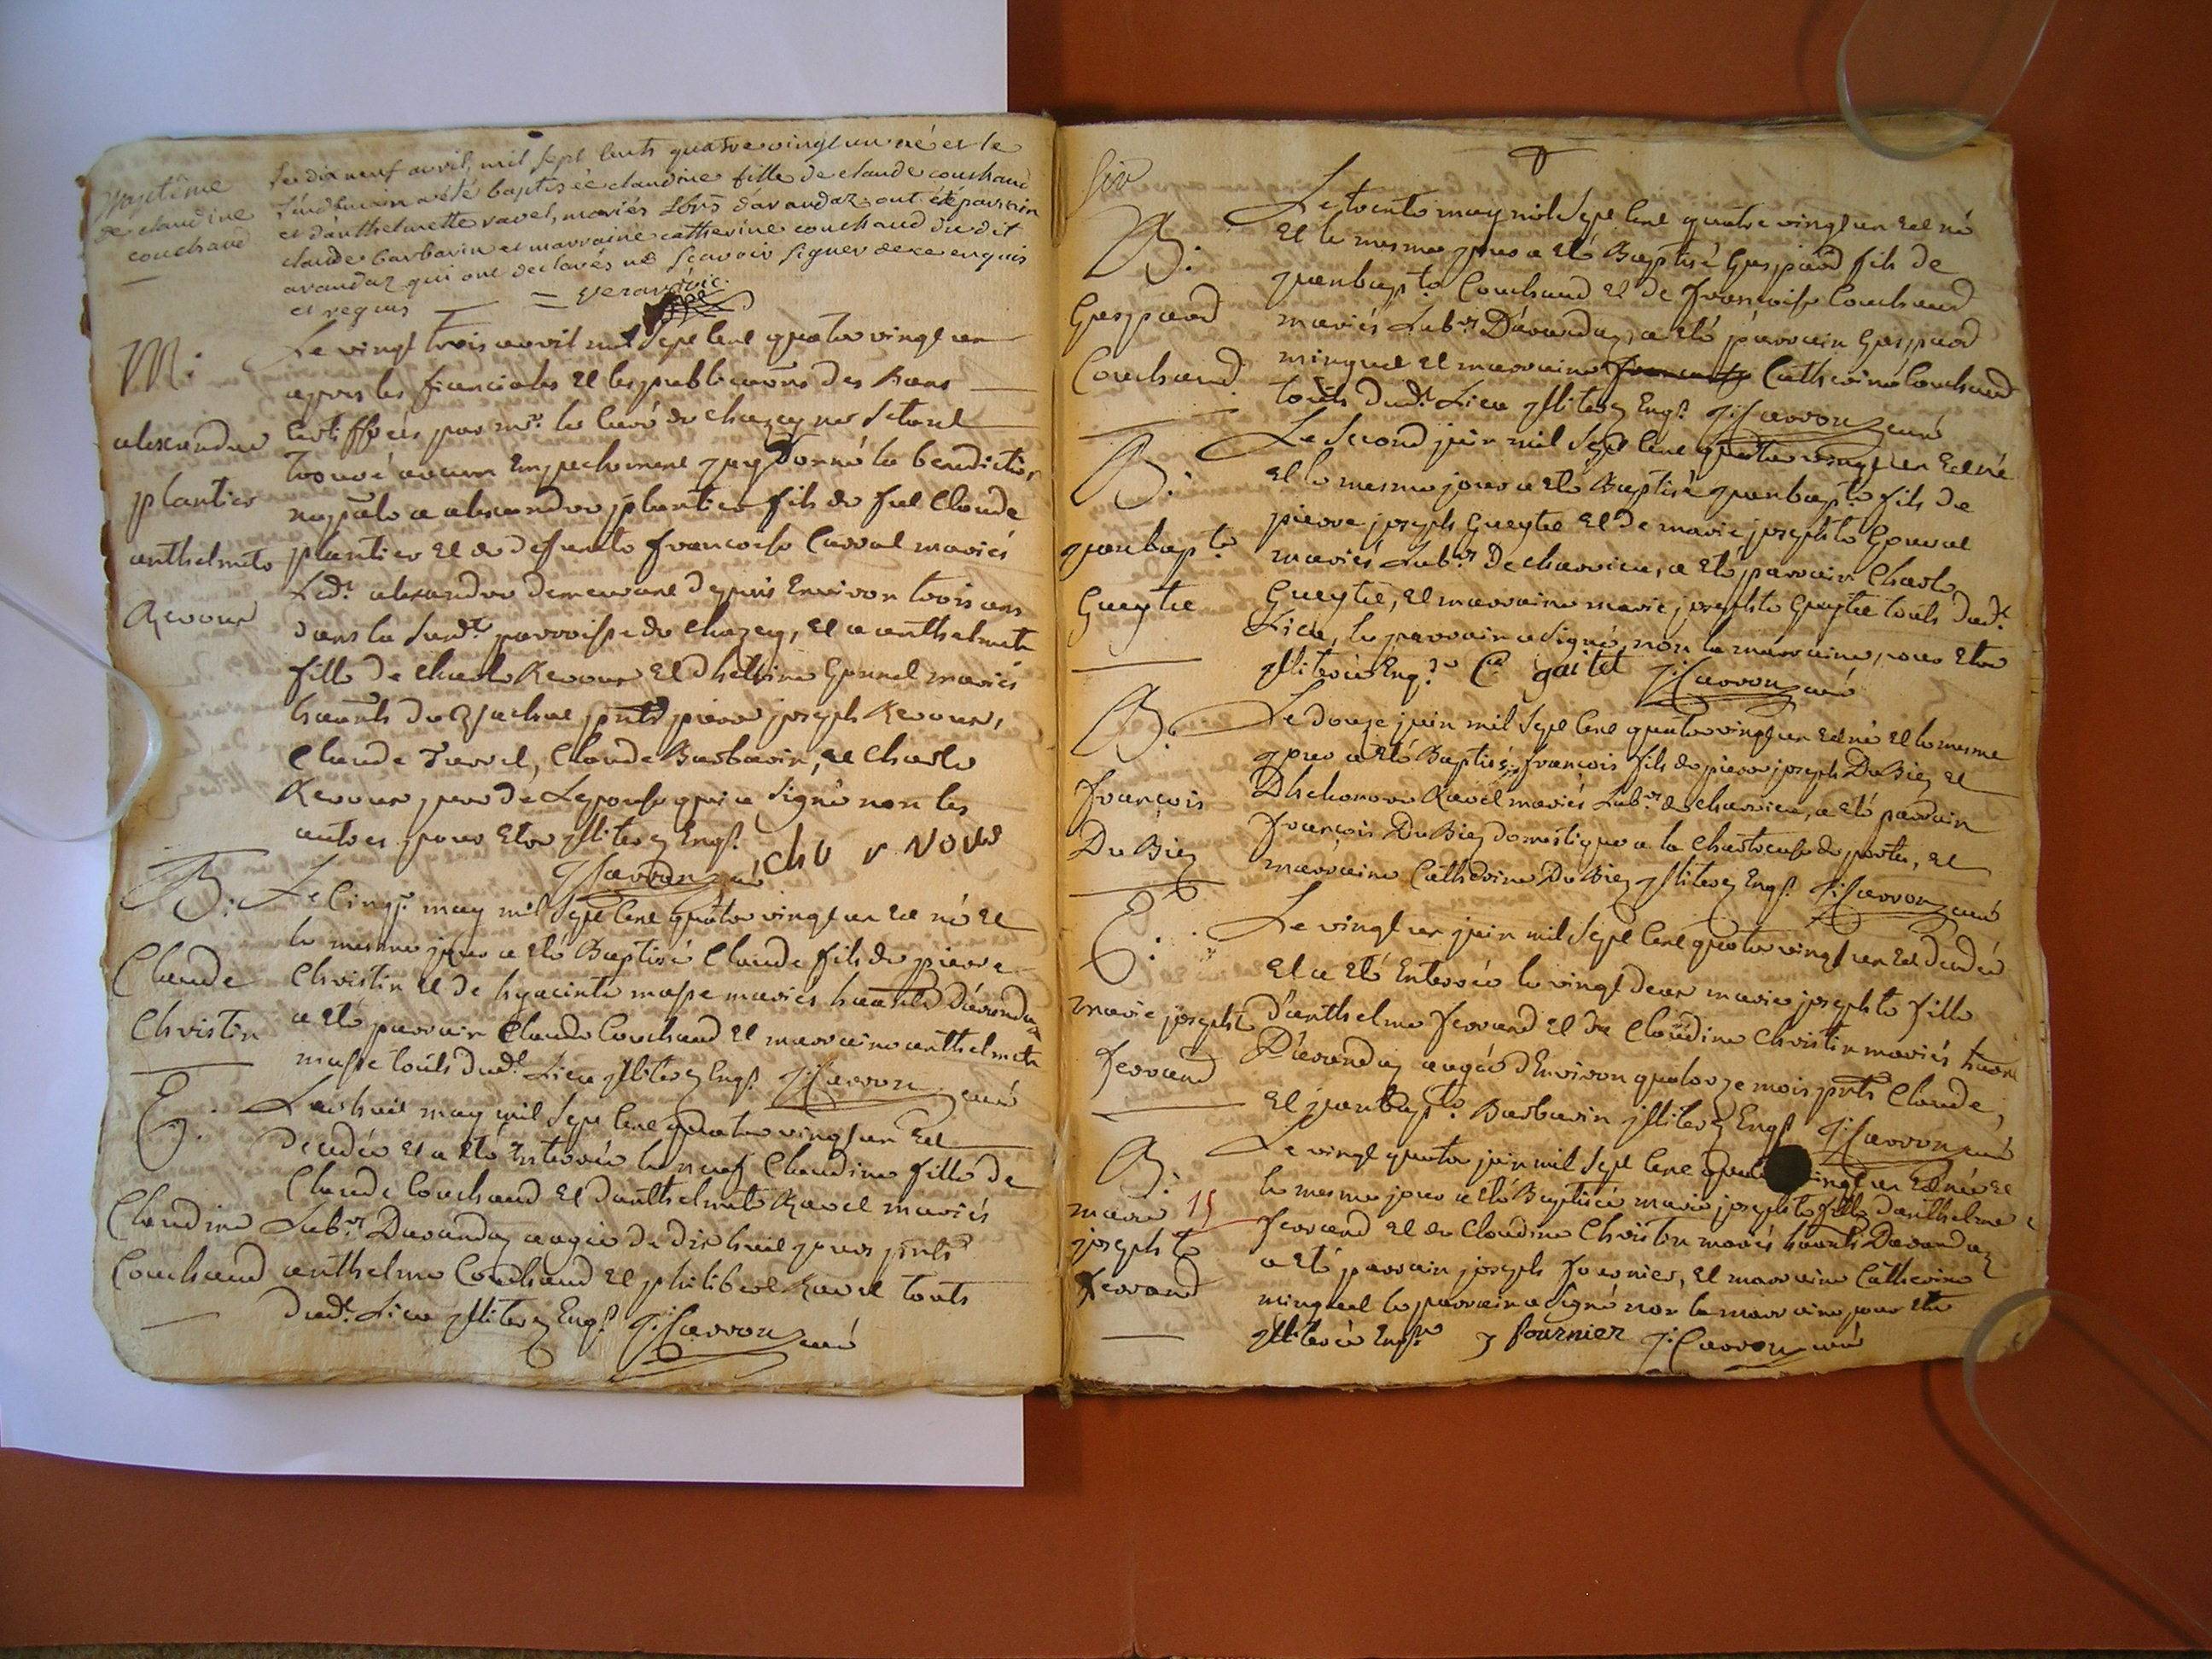 Baptême
de claudine
couchaud
Le dix neuf avril, mil sept cents quatre vingt un né et le
lendemain a été baptisée claudine fille de claude couchaud
et d'anthelmette ravet, mariés Lbrs d'avandaz ont été parrain
claude barbarin et marraine catherine couchaud du dit
avandaz qui ont declarés ne sçavoir signer de ce enquis
et requis
M:
alexandre
plantier
anthelmete
Revour
Le vingt trois avril mil sept cent quatre vingt un
apres les fianciales et les publications des Bans
Certiffiées par mr. le curé de Chazey ne s'etant
trouvé aucun Empechement jay donné la benediction
nuptale a alexandre plantier fils de feu Claude
plantier et de defuncte francoise Carval mariés
Led.t alexandre demeurant depuis Environ trois ans
dans la Susd.te parroisse de Chazey, et a anthelmete
fille de Charle Revour et dhelene Gonnel mariés
pnts pierre joseph Revour,
Claude Barbarin, et Charle
Revour pere de Lepouse qui a Signé non les
autres pour Etre jlliterez Enqs
J: Carron curé
B:
Claude
Christin
Le Cinq may mil Sept Cent quatre vingt un Est né et
le mesme jour a Eté Baptisé Claude fils de pierre
Christin et de hyacinte masse mariés Davandaz
a Eté parrain Claude Couchaud et marraine anthelmete
masse touts dud.t Lieu jlliterez Enqs J: Carron curé
E:
Claudine
Couchaud
Le huit may mil Sept Cent quatre vingt un Est
decedée et a Eté Enterrée le neuf Claudine fille de
Claude Couchaud et danthelmete Ravet mariés
Labrs Davandaz aagée de dix huit jours pnts
anthelme Couchaud et philibert Ravet touts
dud.t Lieu jlliterez Enqs J: Carron curé
six
B:
Gaspard
Couchaud
Le trente may mil Sept Cent quatre vingt un Est né
Et le mesme jour a Eté Baptisé Gaspard fils de
jeanbapte Couchaud et de francoise Couchaud
mariés Labrs Davandaz, a Eté parrain Gaspard
minguet et marraine Catherine Couchaud
touts dud.t Lieu jlliterez Enqs J: Carron curé
B:
jeanbapte
Gueytte
Le Second juin mil Sept Cent quatre vingt un Est né
et le mesme jour a Eté Baptisé jeanbapte fils de
pierre joseph Gueytte et de marie josephte
mariés Labrs De charvieu, a Eté parrain Charle
Gueytte, et marraine marie josephte Gueytte touts dud.t
Lieu, le parrain a Signé, non la marraine, pour Etre
jlliterée Enqse C gaitet J: Carron curé
B:
François
Du Biez
Le douze juin mil Sept Cent quatre vingt un Est né et le mesme
jour a Eté Baptisé francois fils de pierre joseph Du Biez et
Ravet mariés Labrs de charvieu, a Eté parrain
François Du Biez domestique a la Chartreuse de porte, et
marraine Catherine Du Biez jlliterez Enqs J: Carron curé
E:
marie josephte
ferrand
Le vingt un juin mil Sept Cent quatre vingt un Est decedée
Et a Eté Enterrée le vingt deux marie josephte fille
Danthelme ferrand et de Claudine Christin mariés
Davandaz aagée d'Environ quatorze mois pnts Claude,
et jeanbapte Barbarin jlliterez Enqs J: Carron curé
B:
marie
josephte
ferrand
15
Le vingt quatre juin mil Sept Cent vingt un Est née et
le mesme jour a Eté Baptisée marie josephte fille danthelme
ferrand et de Claudine Christin mariés Davandaz
a Eté parrain joseph fournier, et marraine Catherine
minguet le parrain a Signé non la marraine pour Etre
jlliterée Enqse J fournier J: Carron curé